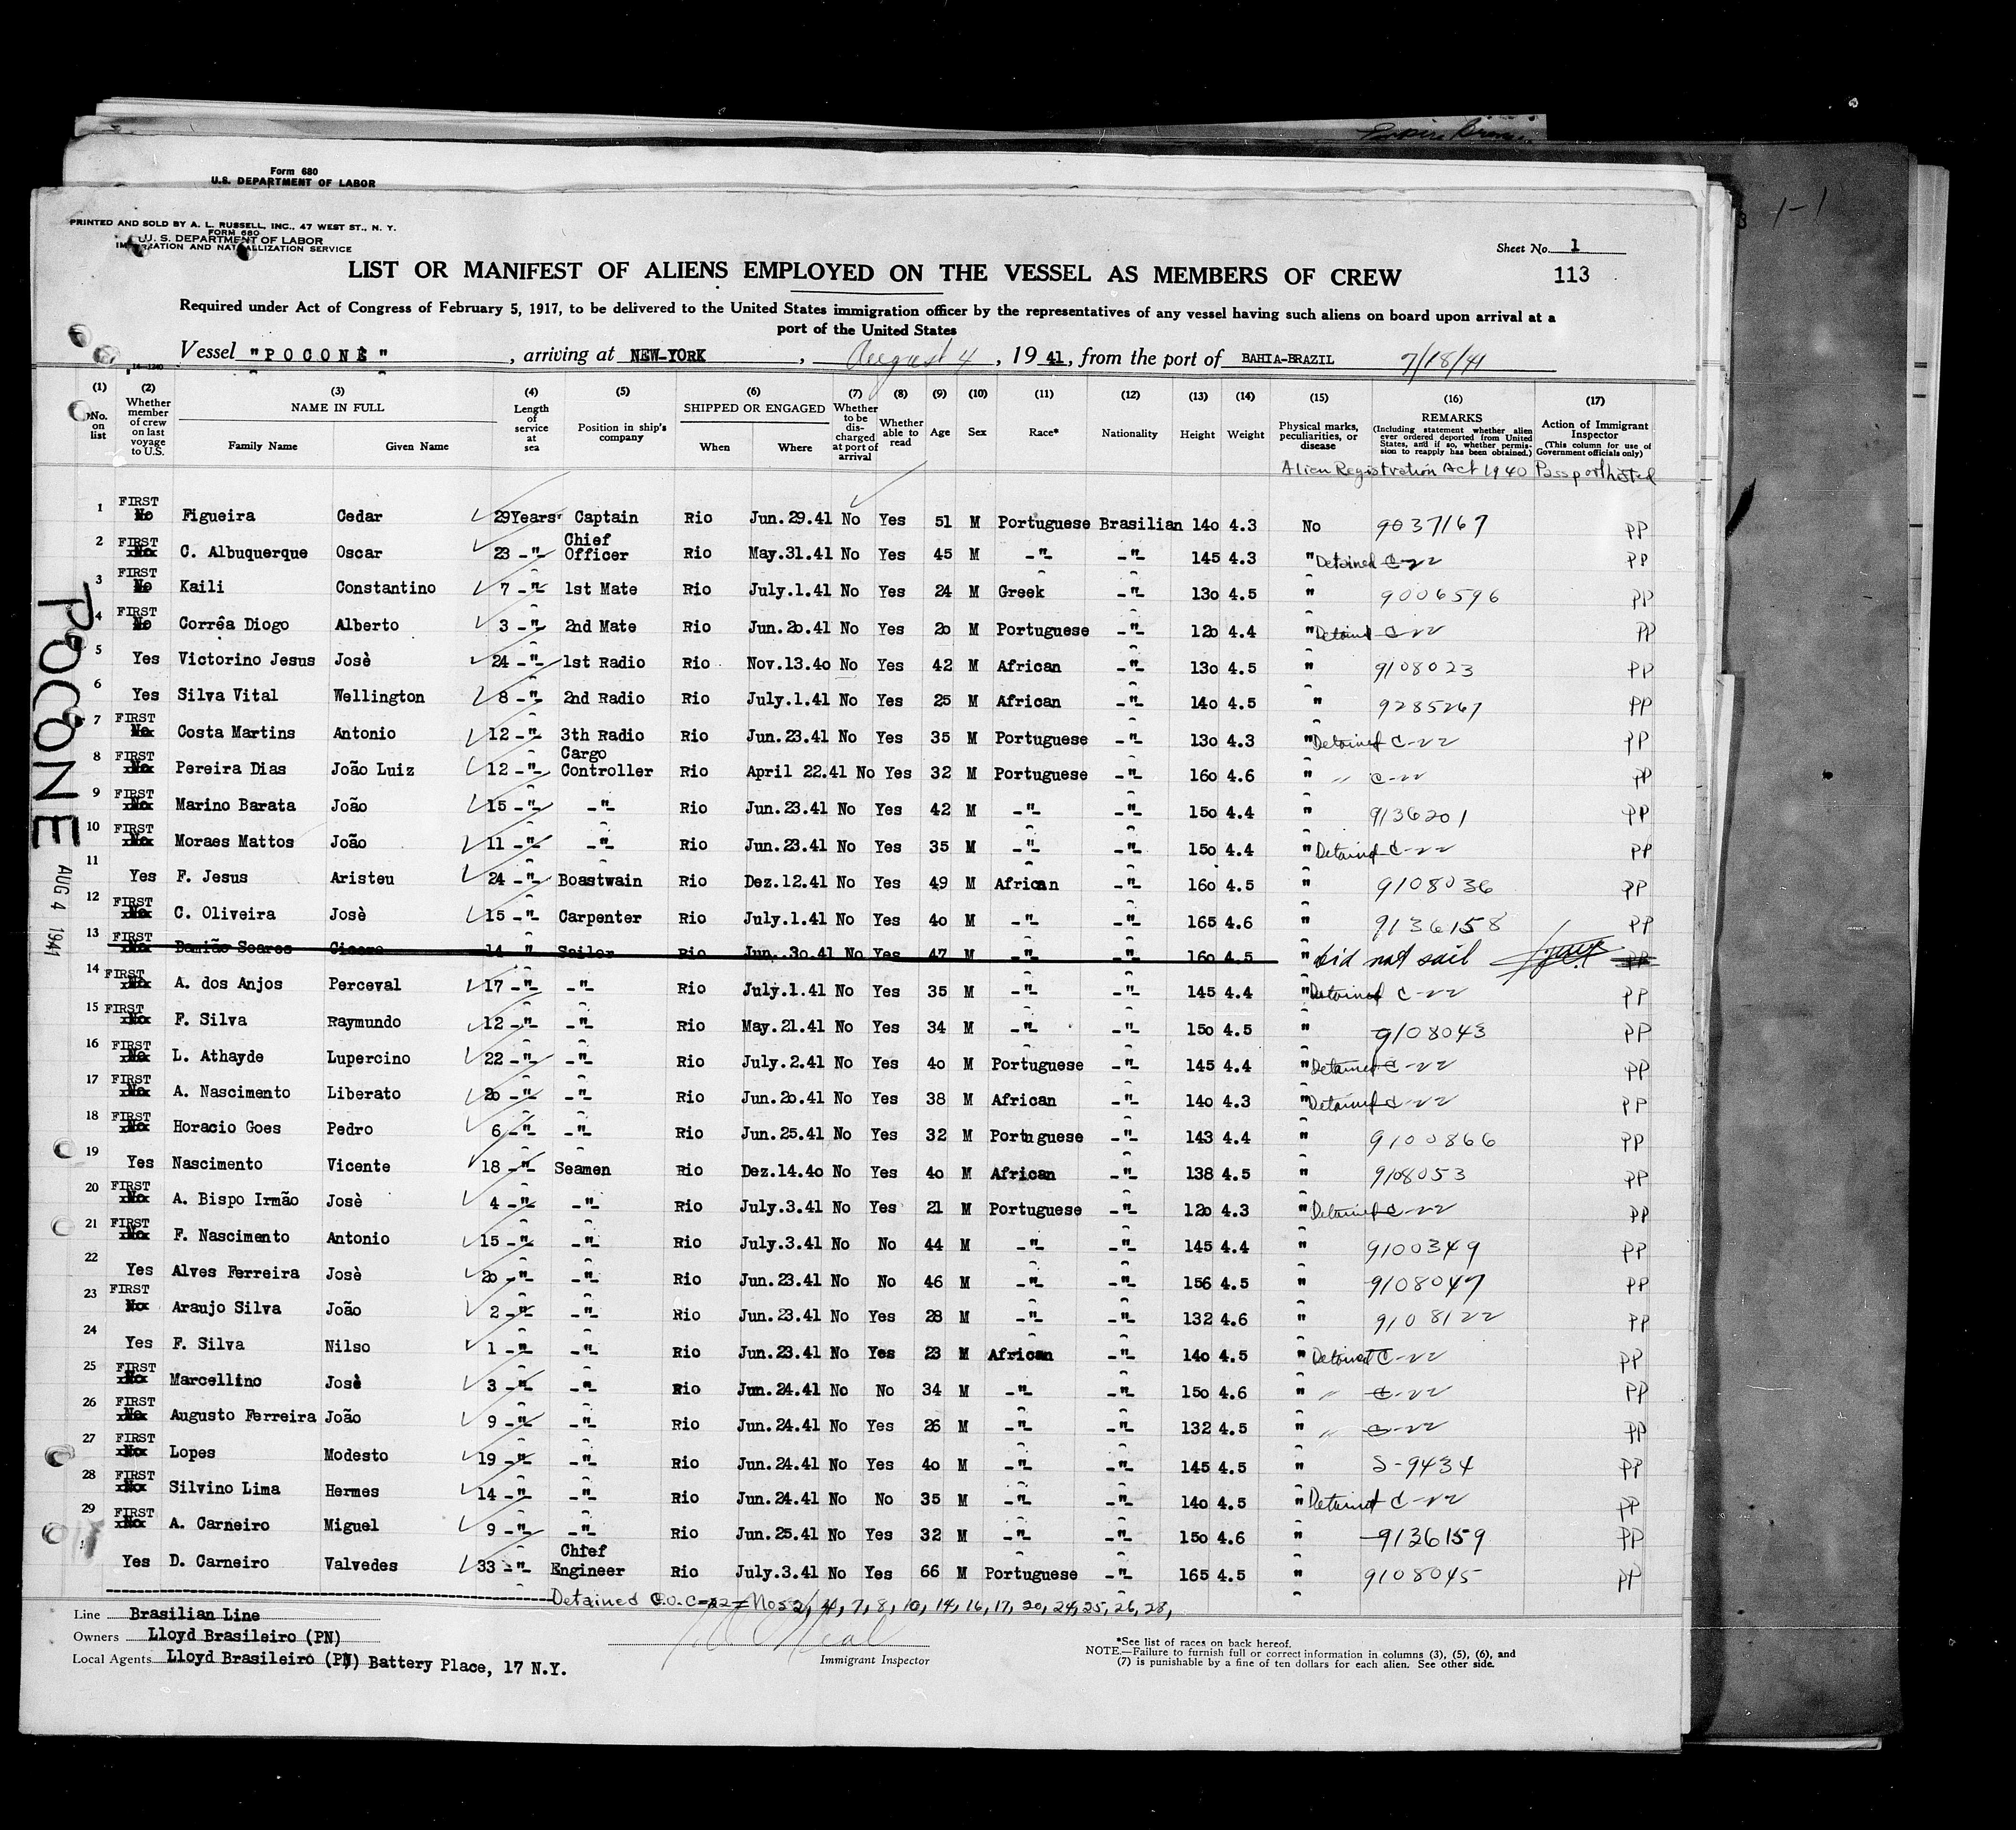 Form 680
U.S. DEPARTMENT OF LABOR
PRINTED AND SOLD BY A. L. RUSSELL, INC., 47 WEST ST., N. Y.
FORM 680
U. S. DEPARTMENT OF LABOR
IMMIGRATION AND NATURALIZATION SERVICE
Sheet No. 1
LIST OR MANIFEST OF ALIENS EMPLOYED ON THE VESSEL AS MEMBERS OF CREW
113
Required under Act of Congress of February 5, 1917, to be delivered to the United States immigration officer by the representatives of any vessel having such aliens on board upon arrival at a
port of the United States
Vessel "POCONÈ", arriving at NEW-YORK, August 4, 1941, from the port of BAHIA-BRAZIL 7/18/41
(1) No. on list
(2) Whether member of crew on last voyage to U.S.
(3) NAME IN FULL Family Name Given Name
(4) Length of service at sea
(5) Position in ship's company
(6) SHIPPED OR ENGAGED When Where
(7) Whether to be discharged at port of arrival
(8) Whether able to read
(9) Age
(10) Sex
(11) Race*
(12) Nationality
(13) Height
(14) Weight
(15) Physical marks, peculiarities, or disease
(16) REMARKS (Including statement whether alien ever ordered deported from United States, and if so, whether permission to reapply has been obtained.)
(17) Action of Immigrant Inspector (This column for use of Government officials only)
Alien Registration Act 1940 Passport
1 FIRST No Figueira Cedar 29Years Captain Rio Jun.29.41 No Yes 51 M Portuguese Brasilian 140 4.3 No 9037167 PP
2 FIRST No C. Albuquerque Oscar 23 -"- Chief Officer Rio May.31.41 No Yes 45 M -"- -"- 145 4.3 " Detained C-22 PP
3 FIRST No Kaili Constantino 7 -"- 1st Mate Rio July.1.41 No Yes 24 M Greek -"- 130 4.5 " 9006596 PP
4 FIRST No Corrêa Diogo Alberto 3 -"- 2nd Mate Rio Jun.20.41 No Yes 20 M Portuguese -"- 120 4.4 " Detained C-22 PP
5 Yes Victorino Jesus Josè 24 -"- 1st Radio Rio Nov.13.40 No Yes 42 M African -"- 130 4.5 " 9108023 PP
6 Yes Silva Vital Wellington 8 -"- 2nd Radio Rio July.1.41 No Yes 25 M African -"- 140 4.5 " 9285267 PP
7 FIRST No Costa Martins Antonio 12 -"- 3th Radio Rio Jun.23.41 No Yes 35 M Portuguese -"- 130 4.3 " Detained C-22 PP
8 FIRST No Pereira Dias João Luiz 12 -"- Cargo Controller Rio April 22.41 No Yes 32 M Portuguese -"- 160 4.6 " " C-22 PP
9 FIRST No Marino Barata João 15 -"- -"- Rio Jun.23.41 No Yes 42 M -"- -"- 150 4.4 " 9136201 PP
10 FIRST No Moraes Mattos João 11 -"- -"- Rio Jun.23.41 No Yes 35 M -"- -"- 150 4.4 " Detained C-22 PP
11 Yes F. Jesus Aristeu 24 -"- Boastwain Rio Dez.12.41 No Yes 49 M African -"- 160 4.5 " 9108036 PP
12 FIRST No C. Oliveira Josè 15 -"- Carpenter Rio July.1.41 No Yes 40 M -"- -"- 165 4.6 " 9136158 PP
13 FIRST No Damião Soares Cicero 14 " Sailor Rio Jun.30.41 No Yes 47 M -"- -"- 160 4.5 " did not sail PP
14 FIRST No A. dos Anjos Perceval 17 -"- -"- Rio July.1.41 No Yes 35 M -"- -"- 145 4.4 " Detained C-22 PP
15 FIRST No F. Silva Raymundo 12 -"- -"- Rio May.21.41 No Yes 34 M -"- -"- 150 4.5 " 9108043 PP
16 FIRST No L. Athayde Lupercino 22 -"- -"- Rio July.2.41 No Yes 40 M Portuguese -"- 145 4.4 " Detained C-22 PP
17 FIRST No A. Nascimento Liberato 20 -"- -"- Rio Jun.20.41 No Yes 38 M African -"- 140 4.3 " Detained C-22 PP
18 FIRST No Horacio Goes Pedro 6 -"- -"- Rio Jun.25.41 No Yes 32 M Portuguese -"- 143 4.4 " 9100866 PP
19 Yes Nascimento Vicente 18 -"- Seamen Rio Dez.14.40 No Yes 40 M African -"- 138 4.5 " 9108053 PP
20 FIRST No A. Bispo Irmão Josè 4 -"- -"- Rio July.3.41 No Yes 21 M Portuguese -"- 120 4.3 " Detained C-22 PP
21 FIRST No F. Nascimento Antonio 15 -"- -"- Rio July.3.41 No No 44 M -"- -"- 145 4.4 " 9100349 PP
22 Yes Alves Ferreira Josè 20 -"- -"- Rio Jun.23.41 No No 46 M -"- -"- 156 4.5 " 9108047 PP
23 FIRST No Araujo Silva João 2 -"- -"- Rio Jun.23.41 No Yes 28 M -"- -"- 132 4.6 " 9108122 PP
24 Yes F. Silva Nilso 1 -"- -"- Rio Jun.23.41 No Yes 23 M African -"- 140 4.5 " Detained C-22 PP
25 FIRST No Marcellino Josè 3 -"- -"- Rio Jun.24.41 No No 34 M -"- -"- 150 4.6 " " C-22 PP
26 FIRST No Augusto Ferreira João 9 -"- -"- Rio Jun.24.41 No Yes 26 M -"- -"- 132 4.5 " " C-22 PP
27 FIRST No Lopes Modesto 19 -"- -"- Rio Jun.24.41 No Yes 40 M -"- -"- 145 4.5 " S-9434 PP
28 FIRST No Silvino Lima Hermes 14 -"- -"- Rio Jun.24.41 No No 35 M -"- -"- 140 4.5 " Detained C-22 PP
29 FIRST No A. Carneiro Miguel 9 -"- -"- Rio Jun.25.41 No Yes 32 M -"- -"- 150 4.6 " 9136159 PP
Yes D. Carneiro Valvedes 33 -"- Chief Engineer Rio July.3.41 No Yes 66 M Portuguese -"- 165 4.5 " 9108045 PP
Detained G.O. C-22 = Nos 2, 4, 7, 8, 10, 14, 16, 17, 20, 24, 25, 26, 28,
Line Brasilian Line
Owners Lloyd Brasileiro (PN)
Local Agents Lloyd Brasileiro (PN) Battery Place, 17 N.Y.
Immigrant Inspector
*See list of races on back hereof.
NOTE.—Failure to furnish full or correct information in columns (3), (5), (6), and
(7) is punishable by a fine of ten dollars for each alien. See other side.
POCONE
AUG 4 1941